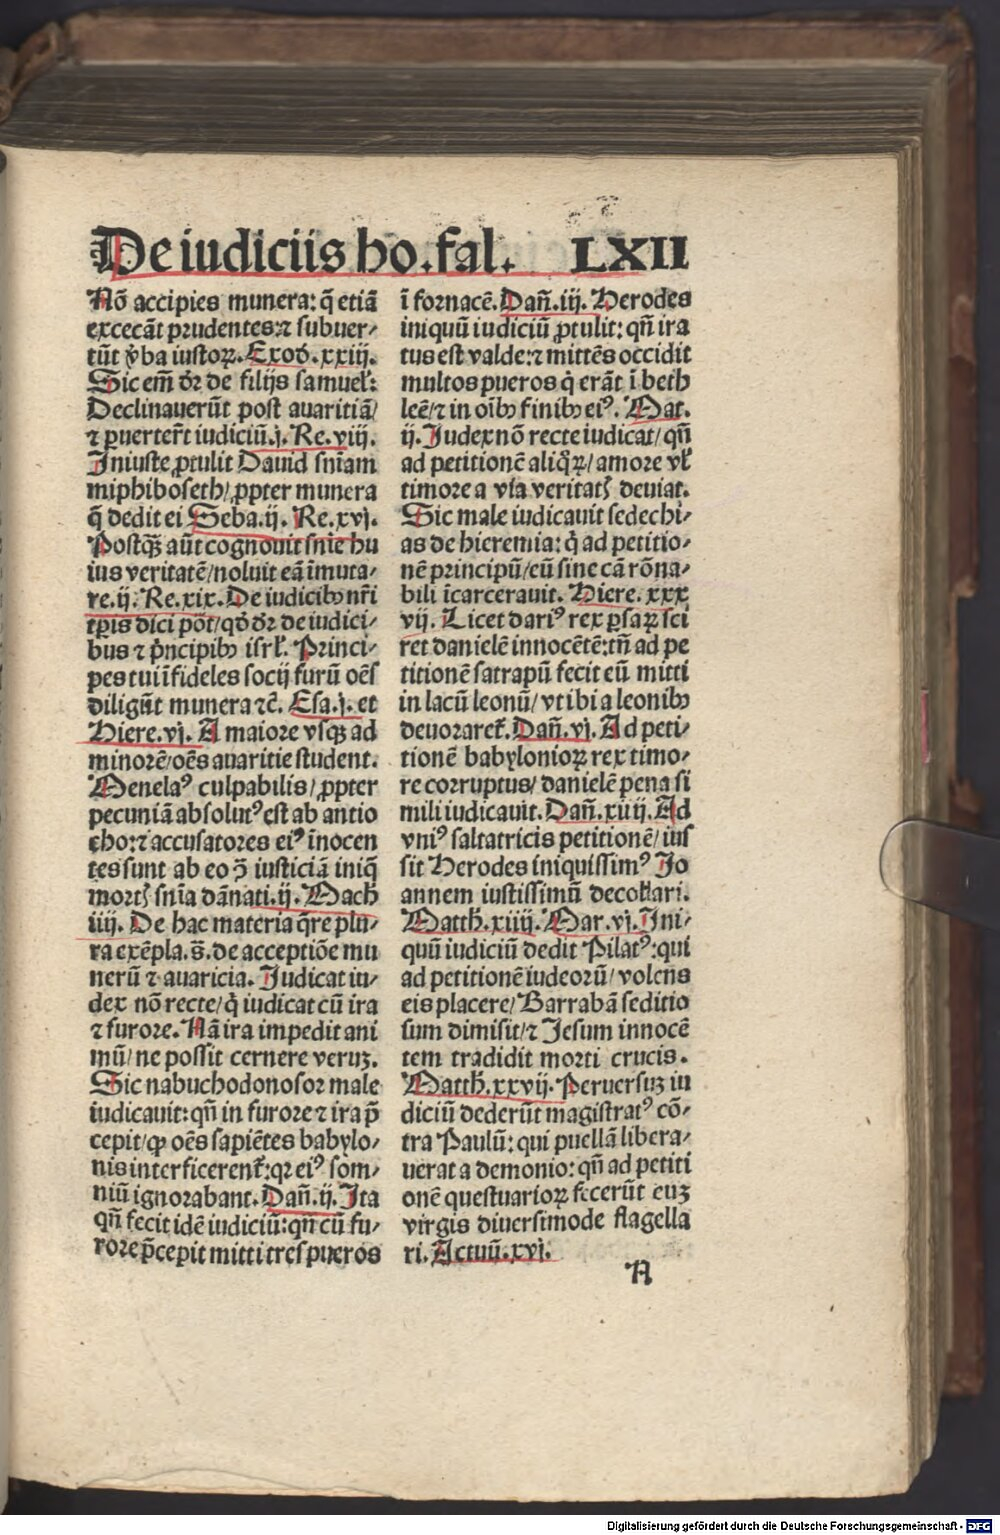 De iudiciis ho. fal. LXII
Nō accipies munera: q̄ etiā
excecāt prudentes: ⁊ subuer⸗
tūt v̄ba iustoꝝ. Exod. xxiij.
Sic em̄ dr̄ de filijs samuel̓:
Declinauerūt post auaritiā/
⁊ ꝑuerter̄t iudiciū. j. Re. viij.
Iniuste ꝓtulit Dauid sn̄iam
miphiboseth/ ꝓpter munera
q̄ dedit ei Seba. ij. Re. xvj.
Postqꝫ̄ aūt cognouit sn̄ie hu
ius veritatē/ noluit eā īmuta⸗
re. ij. Re. xix. De iudicibꝰ nr̄i
tꝑis dici pōt/ qd̄ dr̄ de iudici⸗
bus ⁊ p̄ncipibꝰ isrl̓. Princi⸗
pes tui īfideles socij furū oēs
diligūt munera ⁊c̄. Esa. j. et
Hiere. vj. A maiore vsqꝫ ad
minorē/ oēs auaritie student.
Menelaꝰ culpabilis/ ꝓpter
pecuniā absolutꝰ est ab antio
cho: ⁊ accusatores eiꝰ īnocen
tes sunt ab eo ↄ̄ iusticiā iniq̄
mortꝭ sn̄ia dānati. ij. Mach̄
iiij. De hac materia q̄re plu⸗
ra exēpla. s̄. de acceptiōe mu
nerū ⁊ auaricia. Iudicat iu⸗
dex nō recte/ q̇ iudicat cū ira
⁊ furore. Nā ira impedit ani
mū/ ne possit cernere veruꝫ.
Sic nabuchodonosor male
iudicauit: qn̄ in furore ⁊ ira p̄
cepit/ ꝙ oēs sapiētes babylo⸗
nis interficerent̓: qꝛ eiꝰ som⸗
niū ignorabant. Dan̄. ij. Ita
qn̄ fecit idē iudiciū: qn̄ cū fu⸗
rore p̄cepit mitti tres pueros
ī fornacē. Dan̄. iij. Herodes
iniquū iudiciū ꝓtulit: qn̄ ira
tus est valde: ⁊ mittēs occidit
multos pueros q̇ erāt ī beth
leē/ ⁊ in oībꝰ finibꝰ eiꝰ. Mat.
ij. Iudex nō recte iudicat/ qn̄
ad petitionē aliq̊ꝝ/ amore vl̓
timore a via veritatꝭ deuiat.
Sic male iudicauit sedechi⸗
as de hieremia: q̇ ad petitio⸗
nē principū/ eū sine cā rōna⸗
bili īcarcerauit. Hiere. xxx
vij. Licet dariꝰ rex ꝑsaꝝ sci
ret danielē innocētē: tn̄ ad pe
titionē satrapū fecit eū mitti
in lacū leonū/ vt ibi a leonibꝰ
deuoraret̓. Dan̄. vj. Ad peti⸗
tionē babylonioꝝ rex timo⸗
re corruptus/ danielē pena si
mili iudicauit. Dan̄. xiiij. Ad
vniꝰ saltatricis petitionē/ ius
sit Herodes iniquissimꝰ Jo
annem iustissimū decollari.
Matth̄. xiiij. Mar. vj. Ini⸗
quū iudiciū dedit Pilatꝰ: qui
ad petitionē iudeorū/ volens
eis placere/ Barrabā seditio
sum dimisit/ ⁊ Jesum innocē
tem tradidit morti crucis.
Matth̄. xxvij. Peruersuꝫ iu
diciū dederūt magistratꝰ cō⸗
tra Paulū: qui puellā libera⸗
uerat a demonio: qn̄ ad petiti
onē questuarioꝝ fecerūt euꝫ
virgis diuersimode flagella
ri. Actuū. xvj.
A
Digitalisierung gefördert durch die Deutsche Forschungsgemeinschaft - DFG